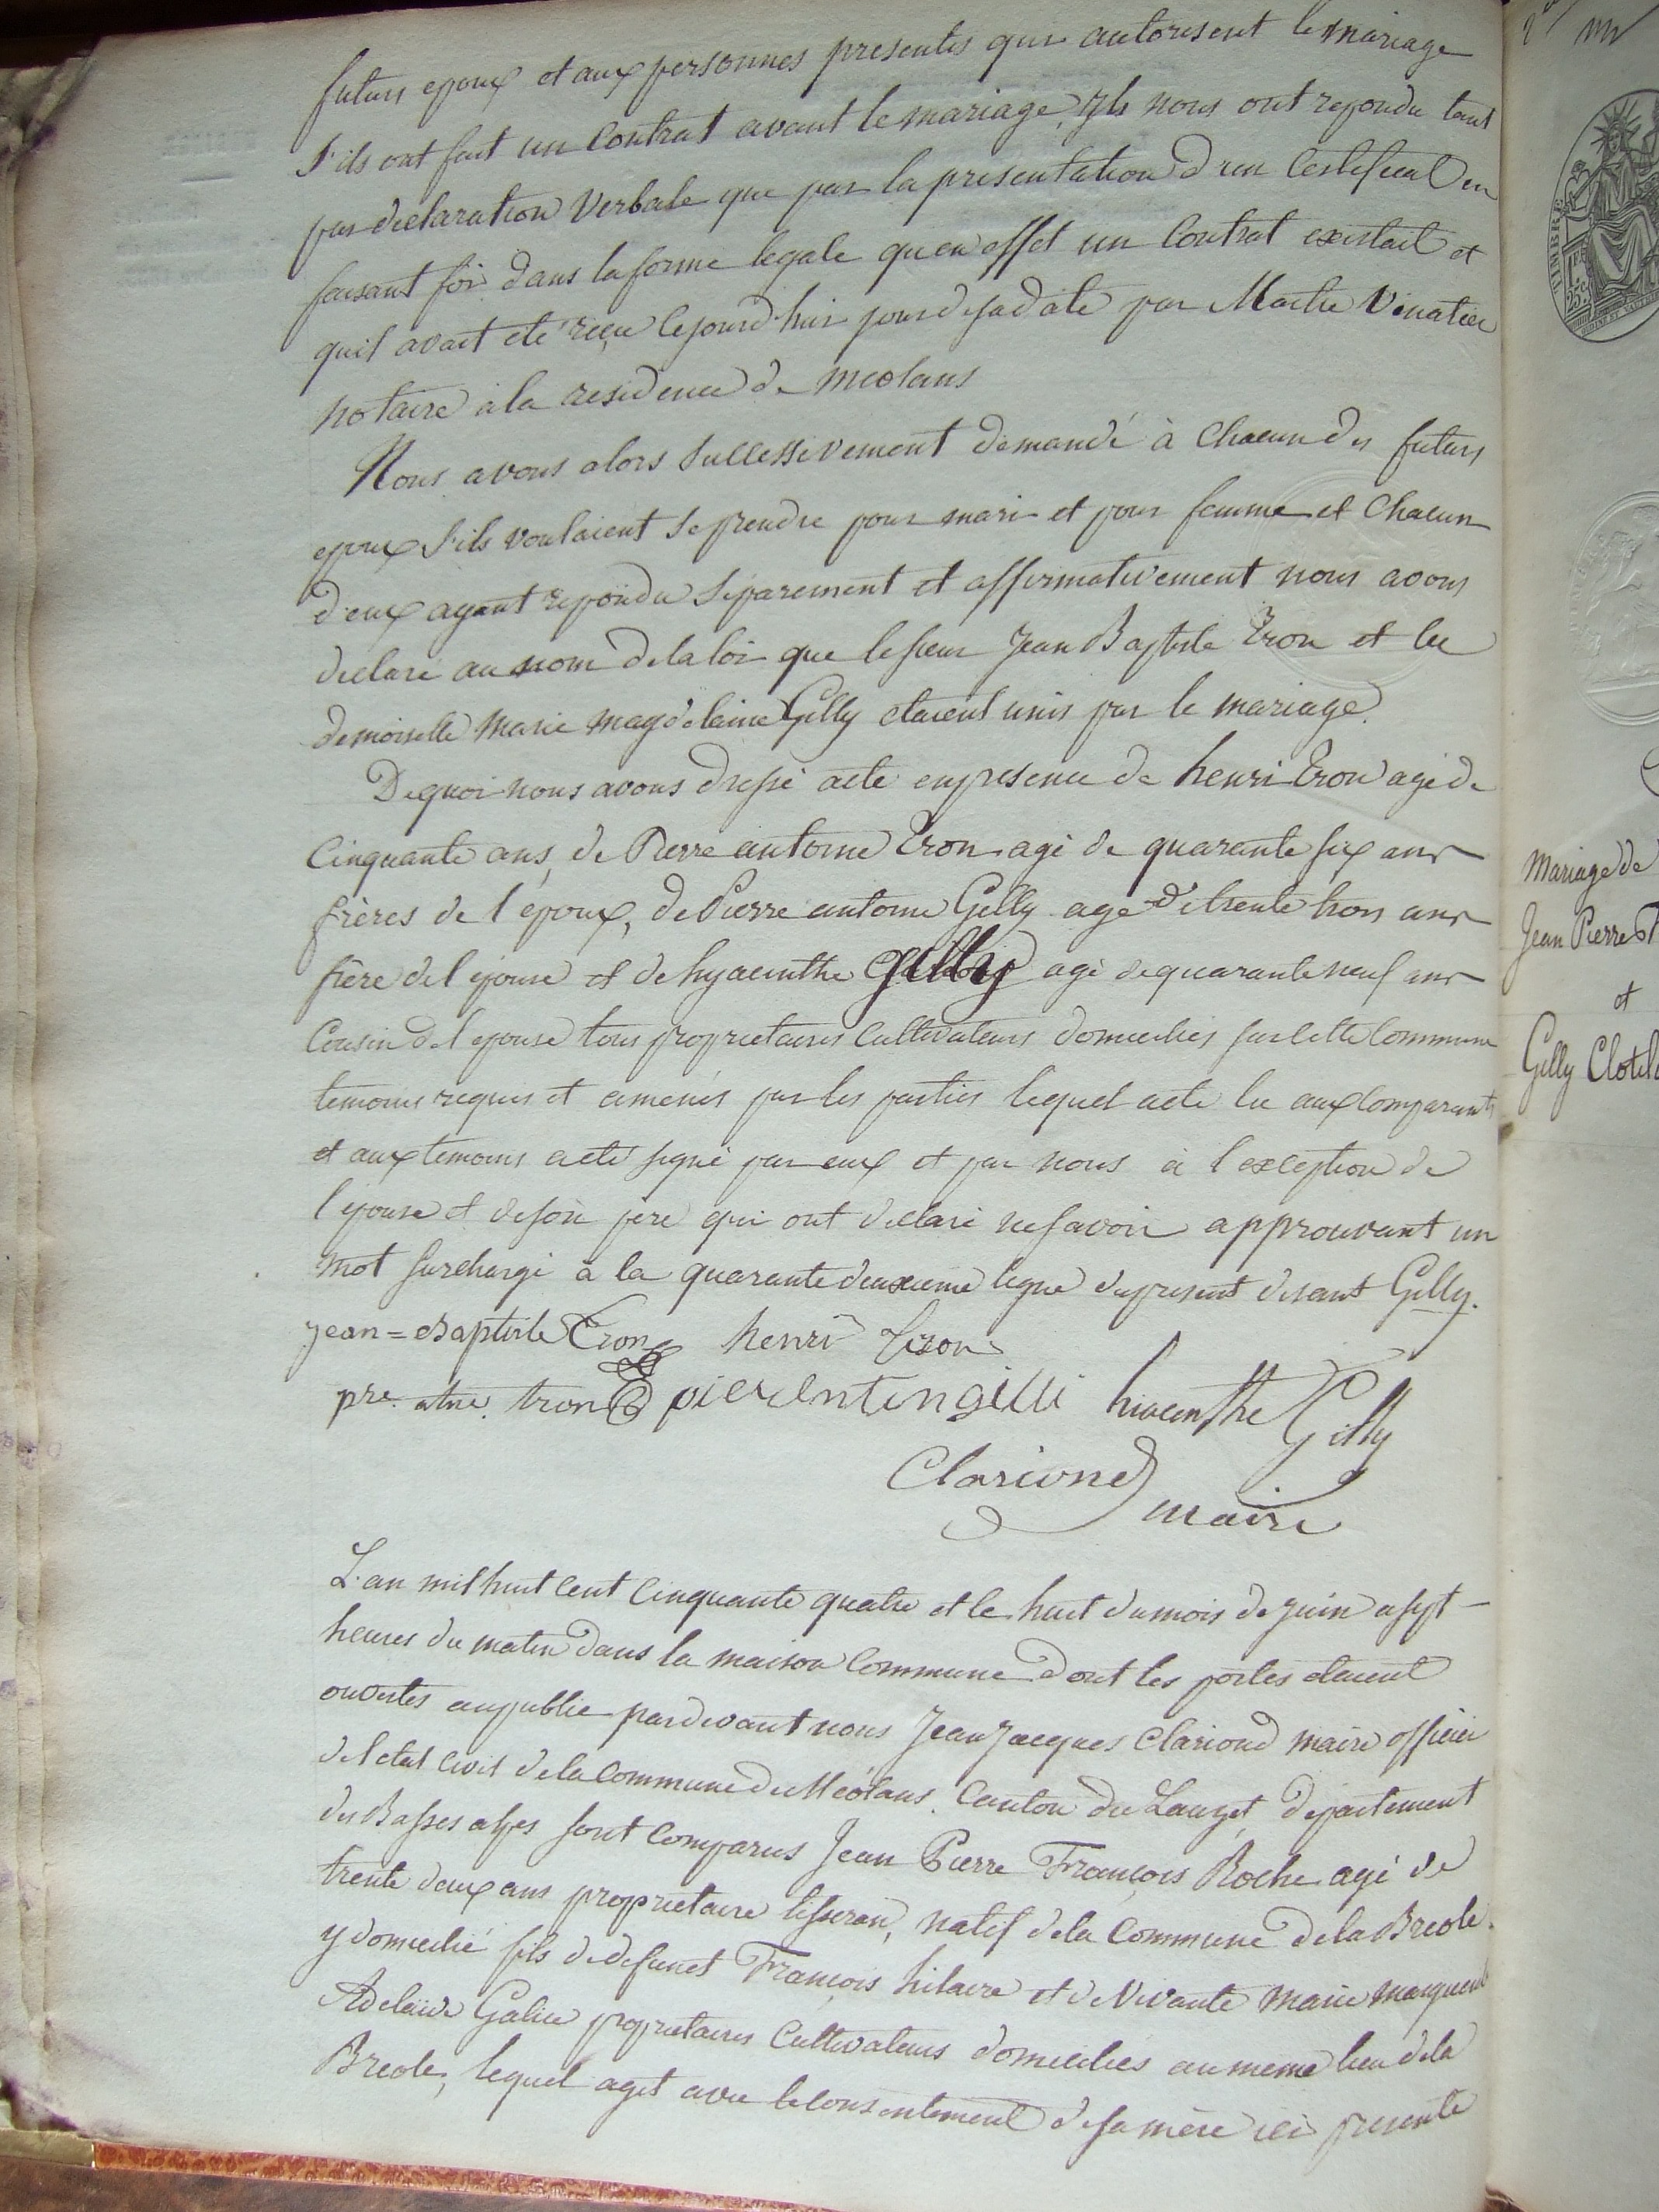 futurs epoux et aux personnes presentes qui autorisent le mariage
s'ils ont fait un Contrat avant le mariage, Ils nous ont repondu tant
par declaration Verbale que par la presentation d'un Certificat en
faisant foi dans la forme legale qu'en effet un Contrat existait et
quil avait eté reçu cejourd'hui jour de sa date par Maitre
notaire à la residence de meolans
Nous avons alors successivement demandé à Chacun des futurs
epoux s'ils voulaient se prendre pour mari et pour femme et Chacun
d'eux ayant repondu separement et affirmativement nous avons
declaré au nom de la loi que le sieur Jean Baptiste Tron et la
demoiselle Marie Magdelaine Gilly etaient unis par le mariage.
De quoi nous avons dressé acte en presence de henri Tron agé de
Cinquante ans, de Pierre antoine Tron agé de quarante six ans
frères de l'époux, de Pierre antoine Gilly agé de trente trois ans
frère de l'epouse et de hyacinthe Gilly agé de quarante neuf ans
Cousin de l'epouse tous proprietaires Cultivateurs domiciliés sur cette Commune
temoins requis et amenés par les parties lequel acte lu aux Comparants
et aux temoins a eté signé par eux et par nous à l'exception de
l'epouse et de son père qui ont declaré ne savoir approuvant un
mot surchargé à la quarante deuxieme ligne du present disant Gilly.
jean=Baptiste Tron henri tron
pre. atne. tron pierentingilli hiacinthe Gilly
Clariond
maire
L'an mil huit Cent Cinquante quatre et le huit du mois de juin a sept
heures du matin dans la maison Commune dont les portes etaient
ouvertes au public pardevant nous Jean Jacques Clariond maire officier
de l'etat civil de la Commune de Méolans. Canton du Lauzet, departement
des Basses alpes sont Comparus Jean Pierre François Roche agé de
trente deux ans proprietaire tisserand, natif de la Commune de la Breole
y domicilié fils de defunct François hilaire et de Vivante Marie
Adelaide Galice proprietaires Cultivateurs domiciliés au meme lieu de la
Breole, lequel agit avec le consentement de sa mère ici presente
Mariage de
Jean Pierre
et
Gilly